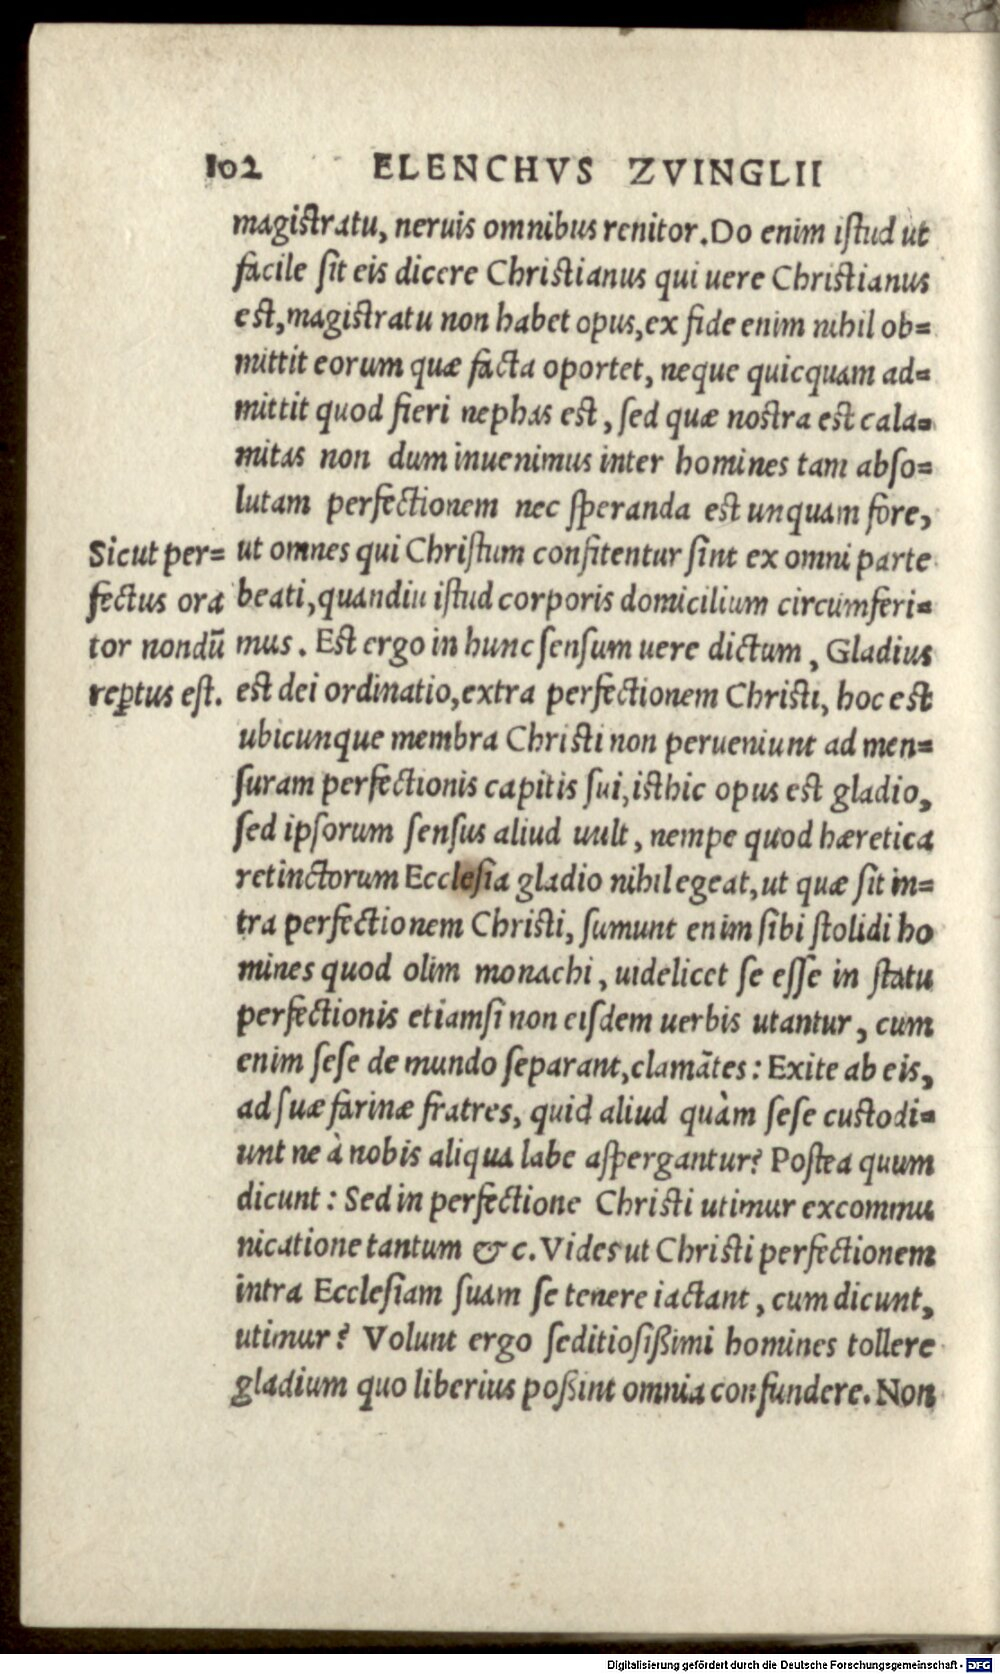 102 ELENCHVS ZVINGLII
magistratu, neruis omnibus renitor. Do enim iſtud ut
facile ſit eis dicere Christianus qui uere Christianus
est, magistratu non habet opus, ex fide enim nihil ob=
mittit eorum quæ facta oportet, neque quicquam ad=
mittit quod fieri nephas est, ſed quæ nostra est cala=
mitas non dum inuenimus inter homines tam abſo=
lutam perfectionem nec ſperanda est unquam fore,
ut omnes qui Chriſtum confitentur ſint ex omni parte
beati, quandiu iſtud corporis domicilium circumferi=
mus. Est ergo in hunc ſenſum uere dictum, Gladius
est dei ordinatio, extra perfectionem Christi, hoc est
ubicunque membra Christi non perueniunt ad men=
ſuram perfectionis capitis ſui, isthic opus est gladio,
ſed ipſorum ſenſus aliud uult, nempe quod hæretica
retinctorum Eccleſia gladio nihil egeat, ut quæ ſit in=
tra perfectionem Christi, ſumunt enim ſibi ſtolidi ho
mines quod olim monachi, uidelicet ſe eſſe in ſtatu
perfectionis etiamſi non eiſdem uerbis utantur, cum
enim ſeſe de mundo ſeparant, clamãtes: Exite ab eis,
ad ſuæ farinæ fratres, quid aliud quàm ſeſe custodi=
unt ne à nobis aliqua labe aſpergantur? Postea quum
dicunt: Sed in perfectione Christi utimur excommu
nicatione tantum & c. Vides ut Christi perfectionem
intra Eccleſiam ſuam ſe tenere iactant, cum dicunt,
utimur? Volunt ergo ſeditioſißimi homines tollere
gladium quo liberius poßint omnia confundere. Non
Sicut per=
fectus ora
tor nondũ
reꝑtus eſt.
Digitalisierung gefördert durch die Deutsche Forschungsgemeinschaft - DFG